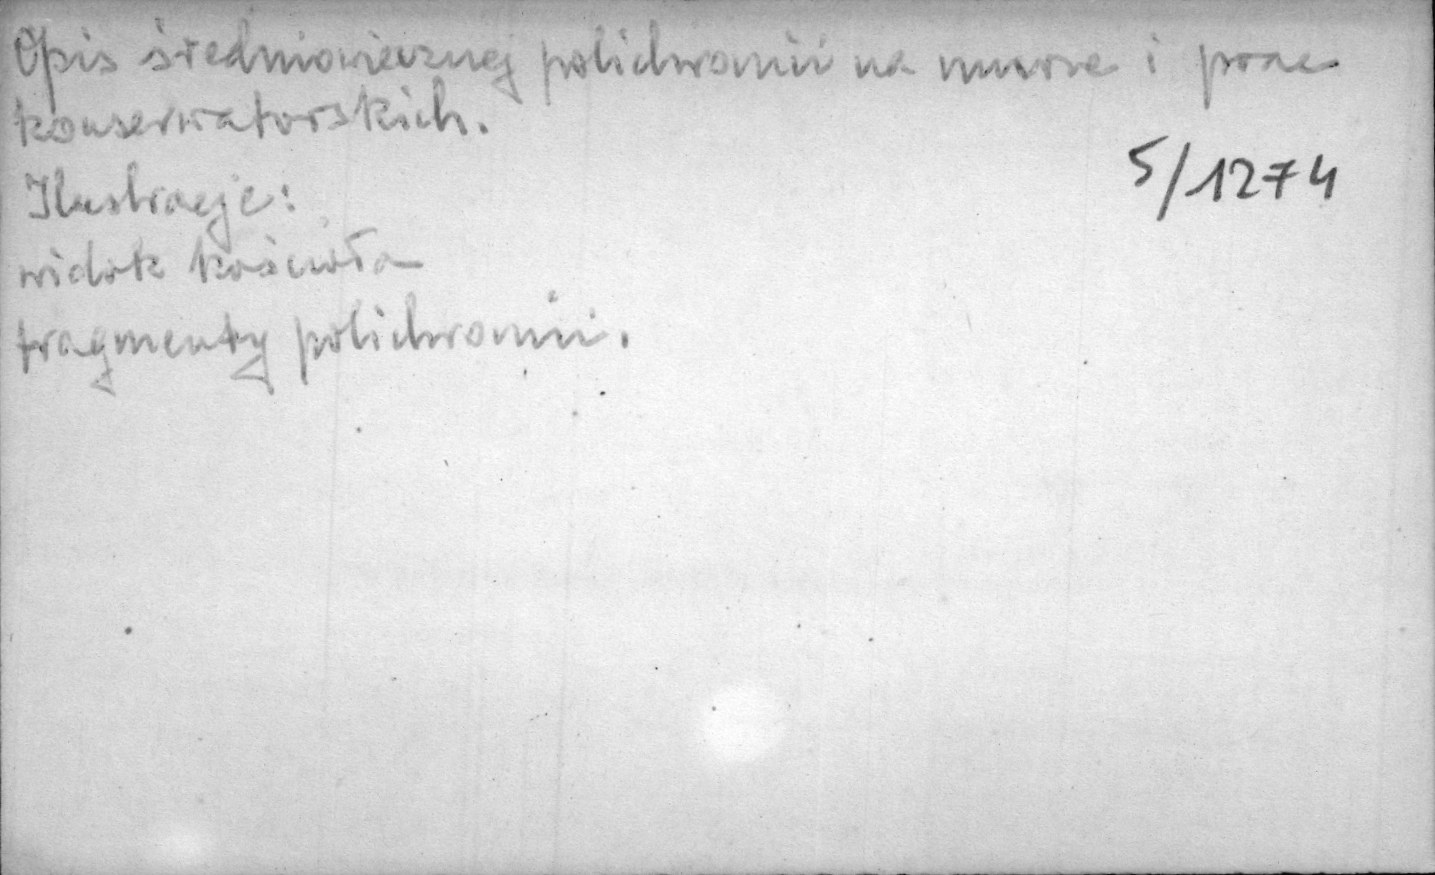 Opis średniowiecznej polichromii na murze i prac
konserwatorskich.
5/1274
Ilustracje:
widok kościoła
fragmenty polichromii.